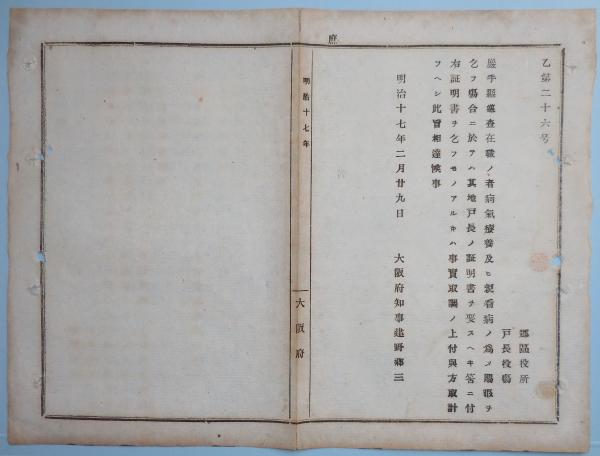 庶
乙第二十六号
郡區役所
戸長役場
巖手縣巡査在職ノ者病氣療養及ヒ親看病ノ爲メ賜暇ヲ
乞フ塲合ニ於テハ其地戸長ノ証明書ヲ要スヘキ筈ニ付
右証明書ヲ乞フモノアルキハ事實取調ノ上付與方取計
フヘシ此旨相達候事
明治十七年二月廿九日 大阪府知事建野郷三
明治十七年
大阪府